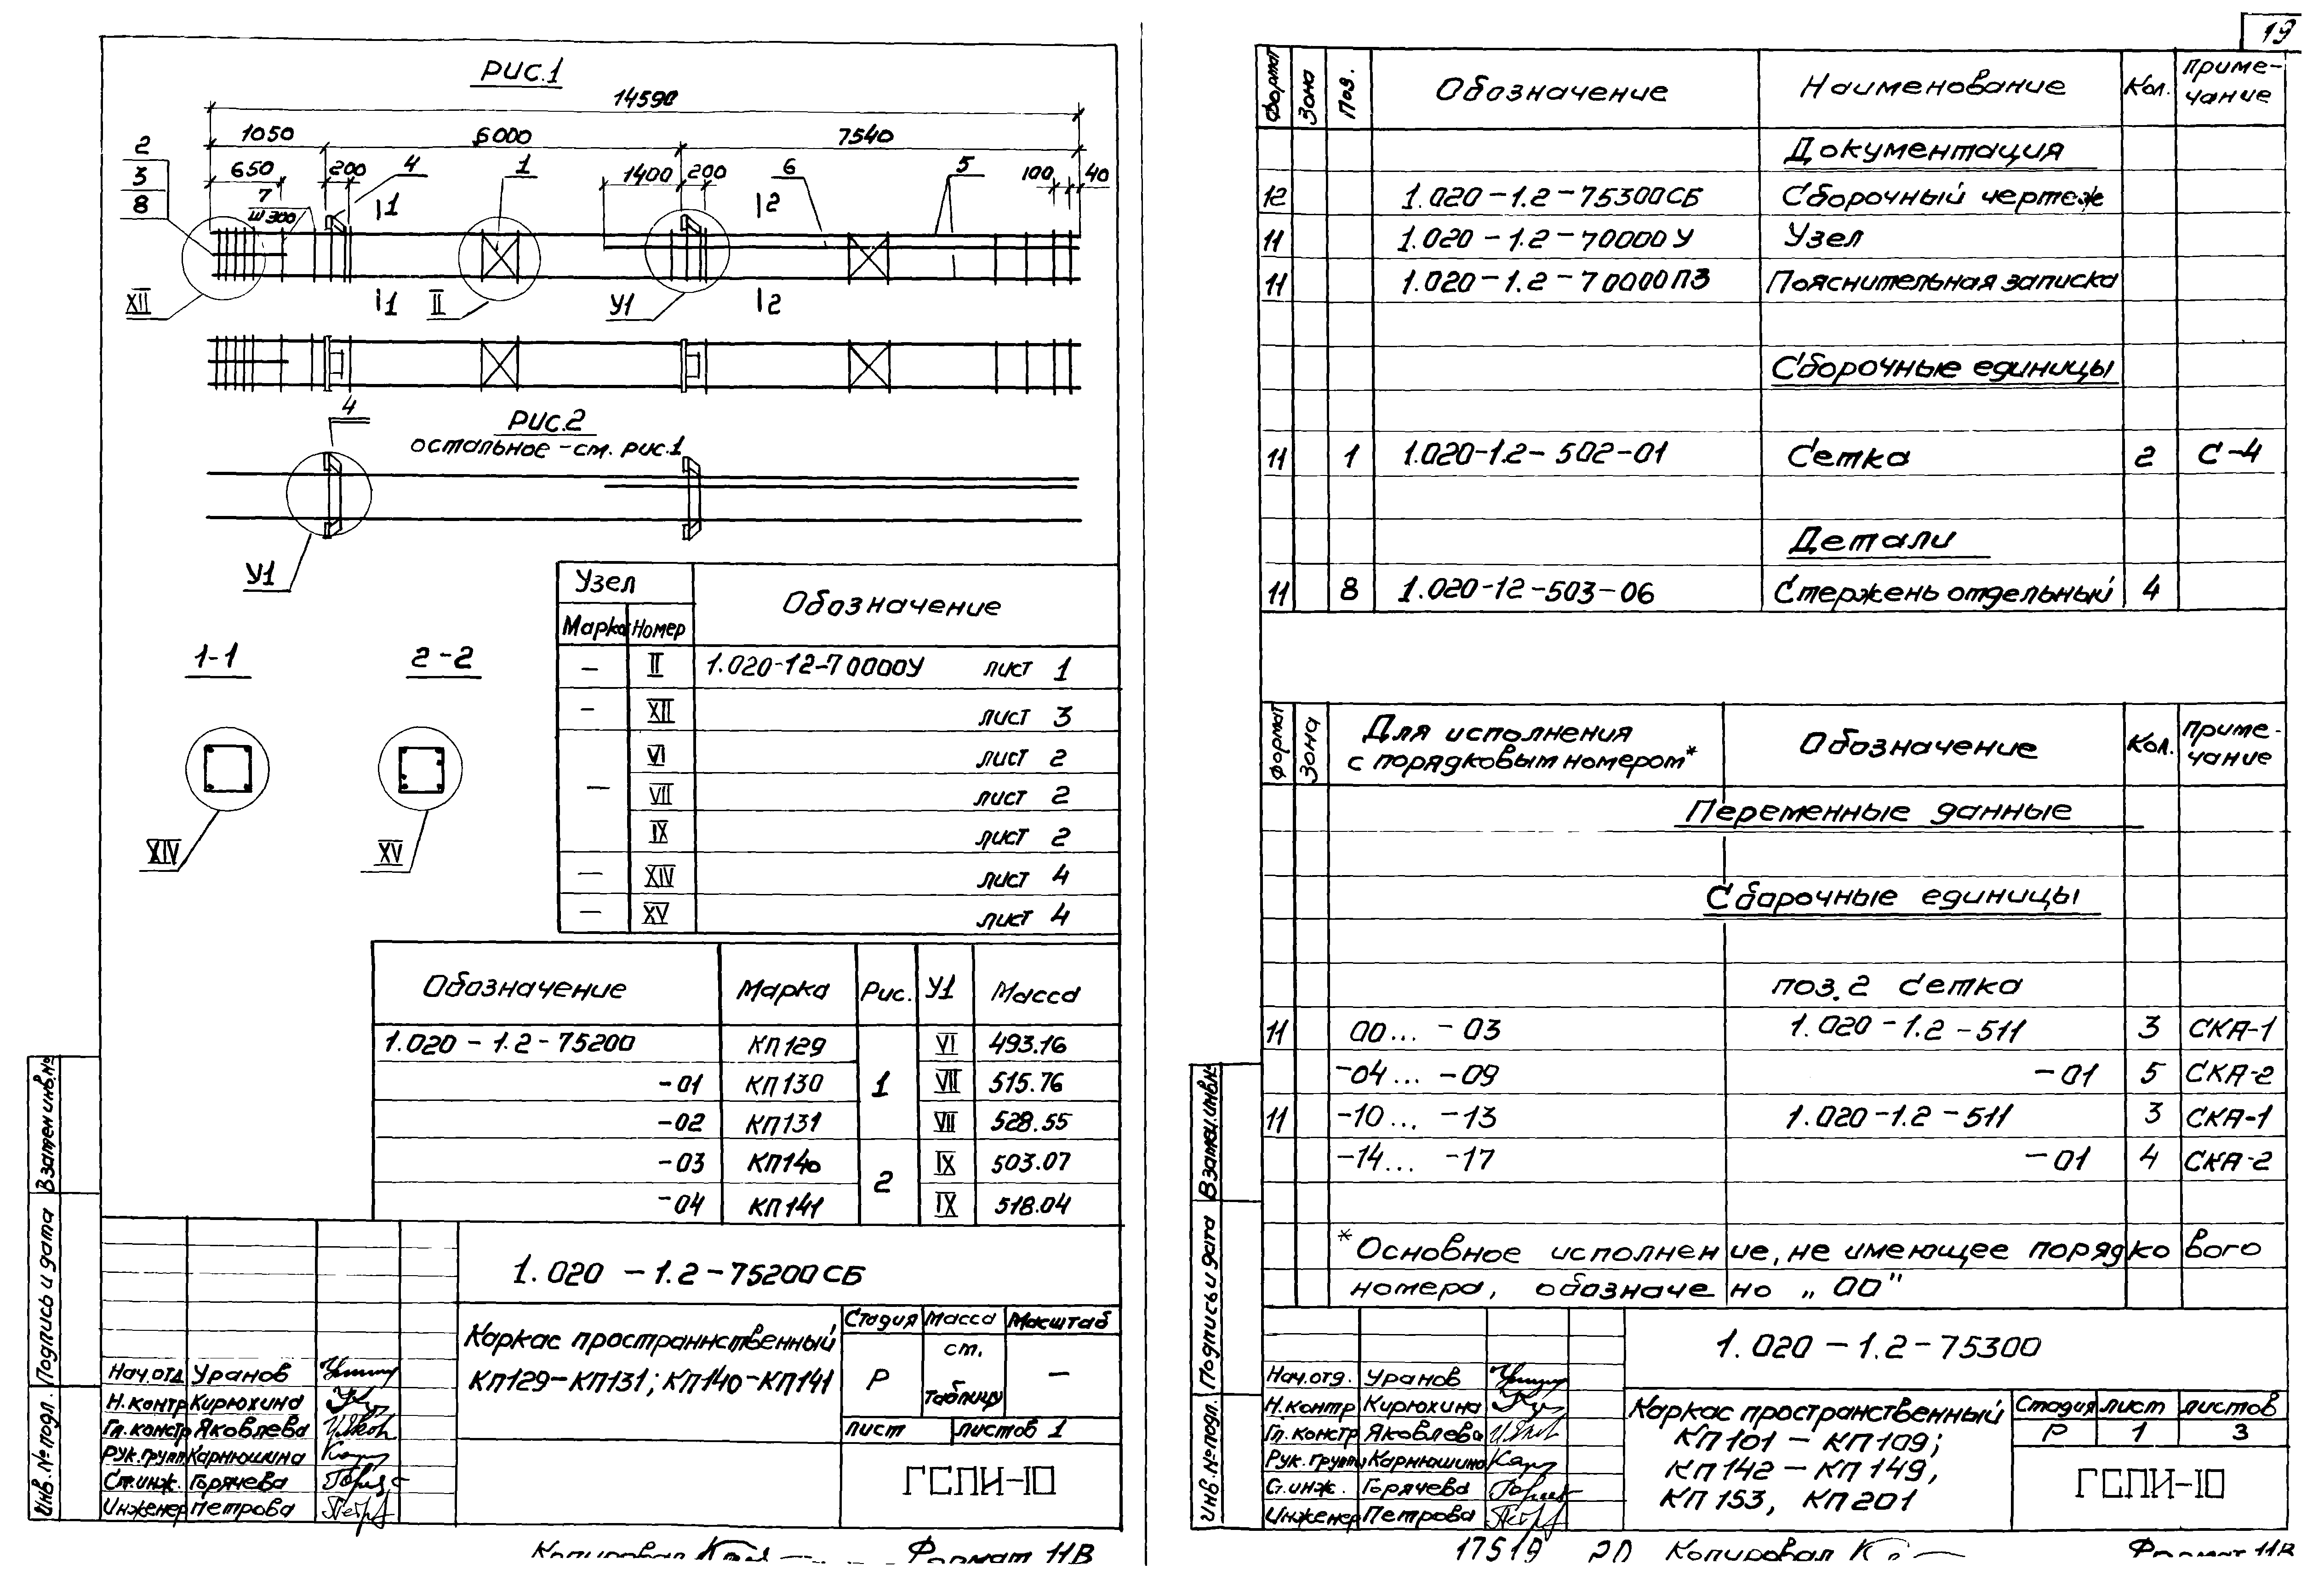 Рис.1
14590
1050 6000 7540
2
3
8
650 200 4 1 1400 200 6 5 100 40
7
ш300
1 2
XII 1 II У1 2
4
Рис.2
остальное - см. рис.1
У1
1-1 2-2
XIV XV
Узел Обозначение
Марка Номер
— II 1.020-12-70000У лист 1
— XII лист 3
VI лист 2
— VII лист 2
IX лист 2
— XIV лист 4
— XV лист 4
Обозначение Марка Рис. У1 Масса
1.020-1.2-75200 КП129 1 VI 493.16
-01 КП130 VII 515.76
-02 КП131 VII 528.55
-03 КП140 2 IX 503.07
-04 КП141 IX 518.04
1.020-1.2-75200СБ
Каркас пространнственный
КП129-КП131; КП140-КП141
Стадия Масса Масштаб
Р ст. таблицу —
лист листов 1
ГСПИ-10
Нач.отд Уранов
Н.контр Кирюхина
Гл.констр Яковлева
Рук.групп Карнюшина
Ст.инж. Горячева
Инженер Петрова
Взамен инв.№
Подпись и дата
Инв.№ подл.
Копировал Формат 11В
19
Формат Зона Поз. Обозначение Наименование Кол. Приме-
чание
Документация
12 1.020-1.2-75300СБ Сборочный чертеж
11 1.020-1.2-70000У Узел
11 1.020-1.2-70000ПЗ Пояснительная записка
Сборочные единицы
11 1 1.020-1.2-502-01 Сетка 2 С-4
Детали
11 8 1.020-12-503-06 Стержень отдельный 4
Формат Зона Для исполнения
с порядковым номером* Обозначение Кол. Приме-
чание
Переменные данные
Сборочные единицы
поз.2 сетка
11 00... -03 1.020-1.2-511 3 СКА-1
-04... -09 -01 5 СКА-2
11 -10... -13 1.020-1.2-511 3 СКА-1
-14... -17 -01 4 СКА-2
*Основное исполнение, не имеющее порядкового
номера, обозначено „00"
1.020-1.2-75300
Каркас пространственный
КП101-КП109;
КП142-КП149,
КП153, КП201
Стадия лист листов
Р 1 3
ГСПИ-10
Нач.отд. Уранов
Н.контр Кирюхина
Гл.констр Яковлева
Рук.группы Карнюшина
Ст.инж. Горячева
Инженер Петрова
Взамен.инв.№
Подпись и дата
Инв.№подл.
17519 20 Копировал Формат 11В